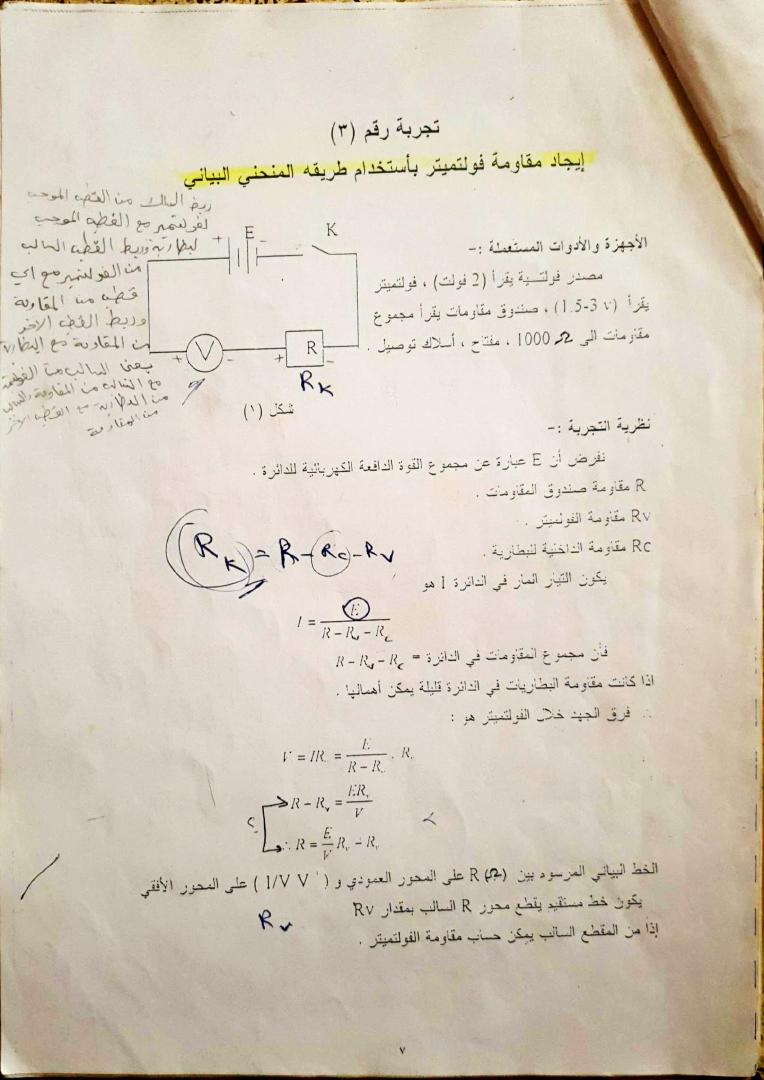 تجربة رقم (٣)
إيجاد مقاومة فولتميتر بأستخدام طريقه المنحني البياني
ربط السالك من القطب الموجب
لفولتمير مع القطب الموجب
لبطارية وربط القطب السالب
من الفولتمير مع اي
قطب من المقاومة
وربط القطب الاخر
من المقاومة مع البطارية
يعني السالب من الفولتمية
مع السالب من المقاومة والسالب
من البطارية مع القطب الاخر
من المقاومة
E
K
+
-
V
+
-
R
+
-
R K
شكل (١)
الأجهزة والأدوات المستعملة :-
مصدر فولتسية يقرأ (2 فولت) ، فولتميتر
يقرأ (1.5-3 v) ، صندوق مقاومات يقرأ مجموع
مقاومات الى 1000 Ω ، مفتاح ، أسلاك توصيل .
نظرية التجربة :-
نفرض أن E عبارة عن مجموع القوة الدافعة الكهربائية للدائرة .
R مقاومة صندوق المقاومات .
Rv مقاومة الفولتميتر .
Rc مقاومة الداخلية للبطارية .
R K = R - Rc - Rv
يكون التيار المار في الدائرة I هو
I = E / R - Rv - Rc
فأن مجموع المقاومات في الدائرة = R - Rv - Rc
اذا كانت مقاومة البطاريات في الدائرة قليلة يمكن أهمالها .
∴ فرق الجهد خلال الفولتميتر هو :
V = IRv = E / R - Rv . Rv
R - Rv = ERv / V
∴ R = E / V Rv - Rv
الخط البياني المرسود بين R (Ω) على المحور العمودي و (1/V V⁻¹) على المحور الأفقي
يكون خط مستقيم يقطع محور R السالب بمقدار Rv
Rv
إذاً من المقطع السالب يمكن حساب مقاومة الفولتميتر .
٧